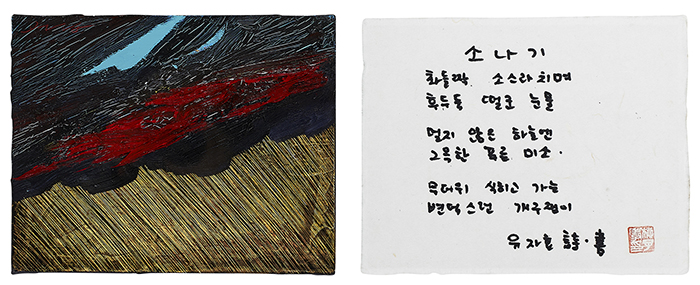 소나기
화들짝 소스라치며
후두둑 떨군 눈물
멀지 않은 하늘엔
그윽한 미소.
무더위 식히고 가는
변덕스런 개구쟁이
유자효 詩·書